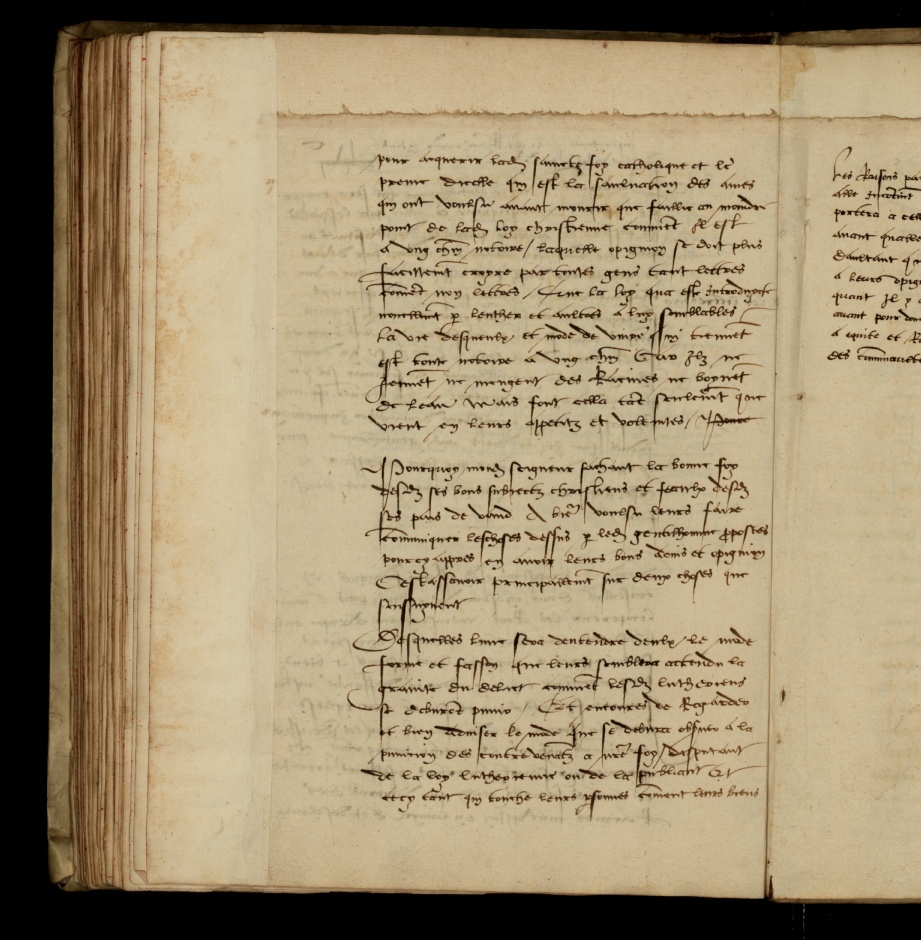 pour acquerir lad saincte foy catholique et le
preme dicelle qui est la saulvacion des ames
qui ont voulsu avant mourir que faillir au moindre
point de lad loy christienne comment Il est
a ung chun notoire / laquelle opignion se doit plus
facillemt croyre par toutes gens tant lettres
comet non lettres / Que la loy qua este introduyte
nouvellmt p leuther et aultres a luy semblables
La vie desquieulx et mode de vivre quilz tiennet
est toute notoire a ung chun Car Ilz ne
jeunet ne mengent des Racines ne boyvet
de leau Mais font cella tat seulemt que
vient en leurs appetitz et volentes /
Pourquoy mond seigneur sachant la bonne foy
desd ses bons subiectz christiens et feaulx desd
ses pais de vaud A bien voulsu leurs faire
communiquer leschoses dessus p led gentilhomme pposees
pour cy appres en avoir leurs bons advis et opignion
Cestassavoir principallemt sur deux choses que
sensuyvent
Desquelles lune sera dentendre deulx / le mode
forme et fasson que leurs semblera actendu la
gravite du delict comet lesd lutheriens
se debvret punir / Et encoures de Regarder
et bien adviser le mode que se debvra obsver a la
punicion des contrevenatz a nre foy / disputant
de la loy lutherienne ou de la publiant Et
cecy tant qui touche leurs psonnes coment leurs biens
les Raisons
portera a
avant
a leurs
quant Il y
avant pour
a equite et
des